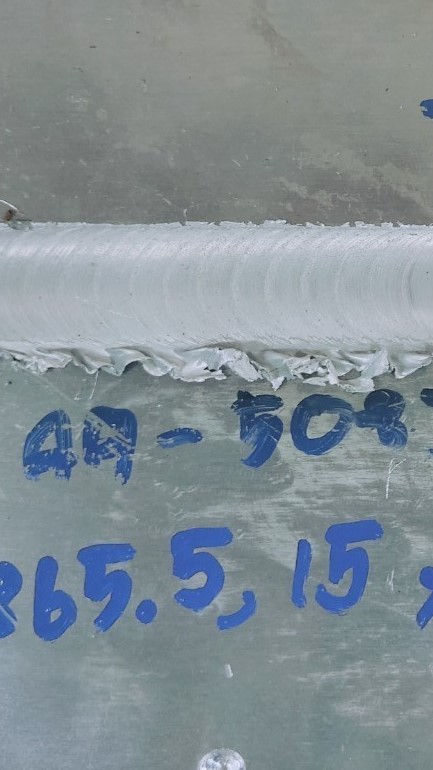 AA-508
865.5, 15